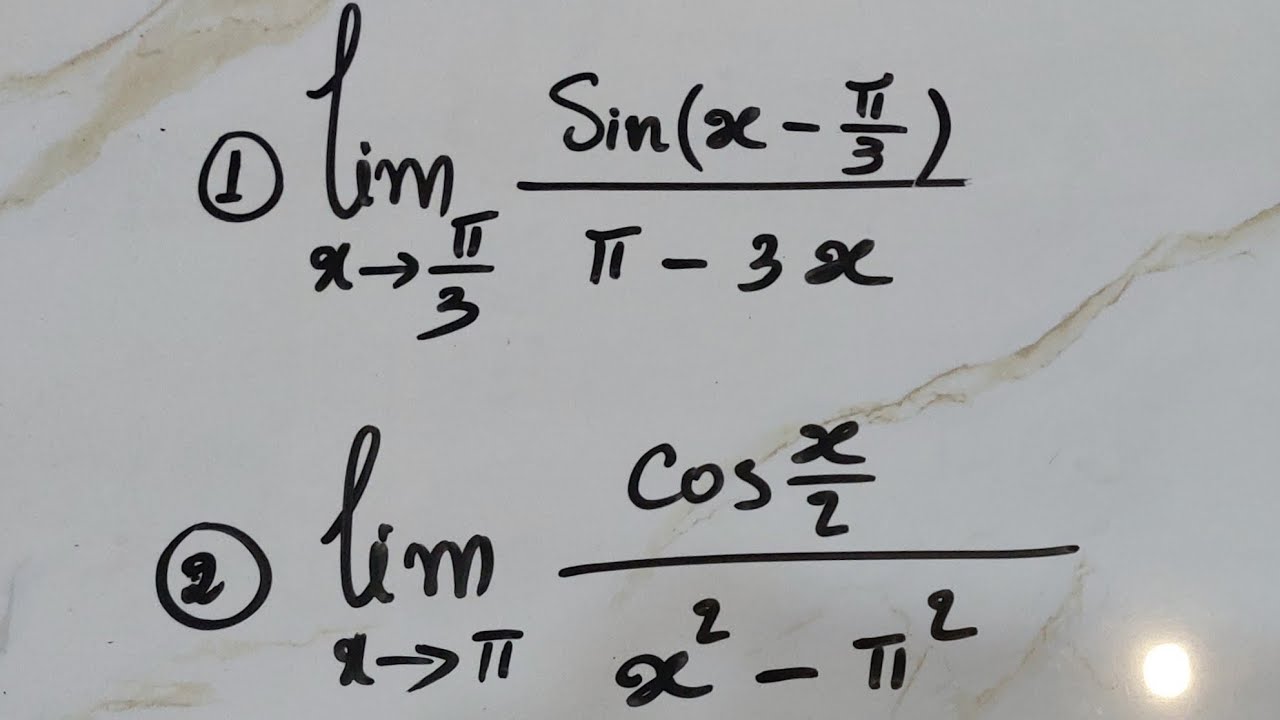 ① lim x→π/3 Sin(x − π/3) / π − 3x
② lim x→π cos x/2 / x² − π²